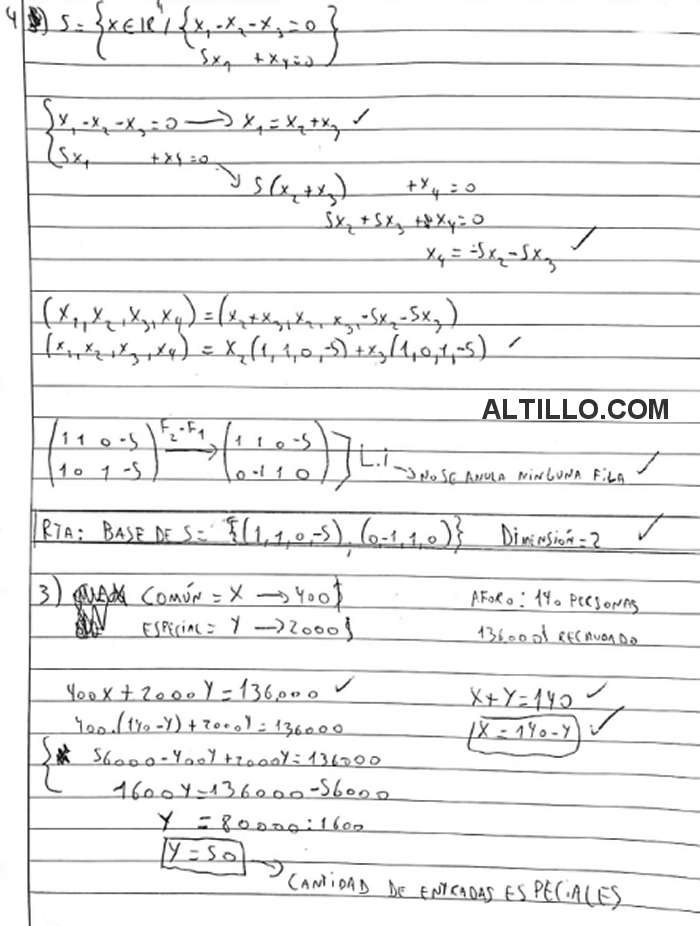 4) S = { X ∈ IR⁴ / { x₁ - x₂ - x₃ = 0
5x₁ + x₄ = 0 }
{ x₁ - x₂ - x₃ = 0 → x₁ = x₂ + x₃ ✓
{ 5x₁ + x₄ = 0
5(x₂ + x₃) + x₄ = 0
5x₂ + 5x₃ + x₄ = 0
x₄ = -5x₂ - 5x₃ ✓
(x₁, x₂, x₃, x₄) = (x₂ + x₃, x₂, x₃, -5x₂ - 5x₃)
(x₁, x₂, x₃, x₄) = x₂(1, 1, 0, -5) + x₃(1, 0, 1, -5) ✓
ALTILLO.COM
(1 1 0 -5) F₂-F₁ → (1 1 0 -5)
(1 0 1 -5) (0 -1 1 0) ] L.i → NO SE ANULA NINGUNA FILA ✓
RTA: BASE DE S = {(1, 1, 0, -5), (0 -1, 1, 0)} DIMENSIÓN = 2 ✓
3) COMÚN = X → 400$ AFORO: 140 PERSONAS
ESPECIAL = Y → 2000$ 136.000$ RECAUDADO
400X + 2000Y = 136.000 ✓ X + Y = 140 ✓
400.(140 - Y) + 2000Y = 136000 X = 140 - Y ✓
{ 56000 - 400Y + 2000Y = 136000
1600Y = 136000 - 56000
Y = 80000 : 1600
Y = 50 → CANTIDAD DE ENTRADAS ESPECIALES